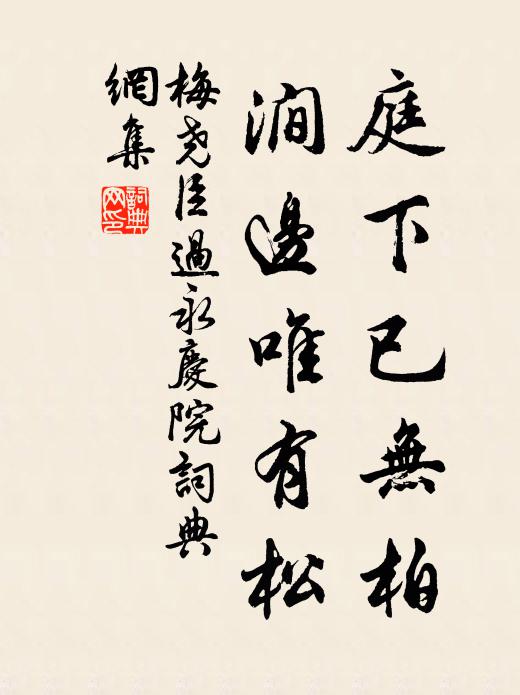 庭下已無柏
澗邊唯有松
梅尧臣過永慶院詞典
網集
詞典网印